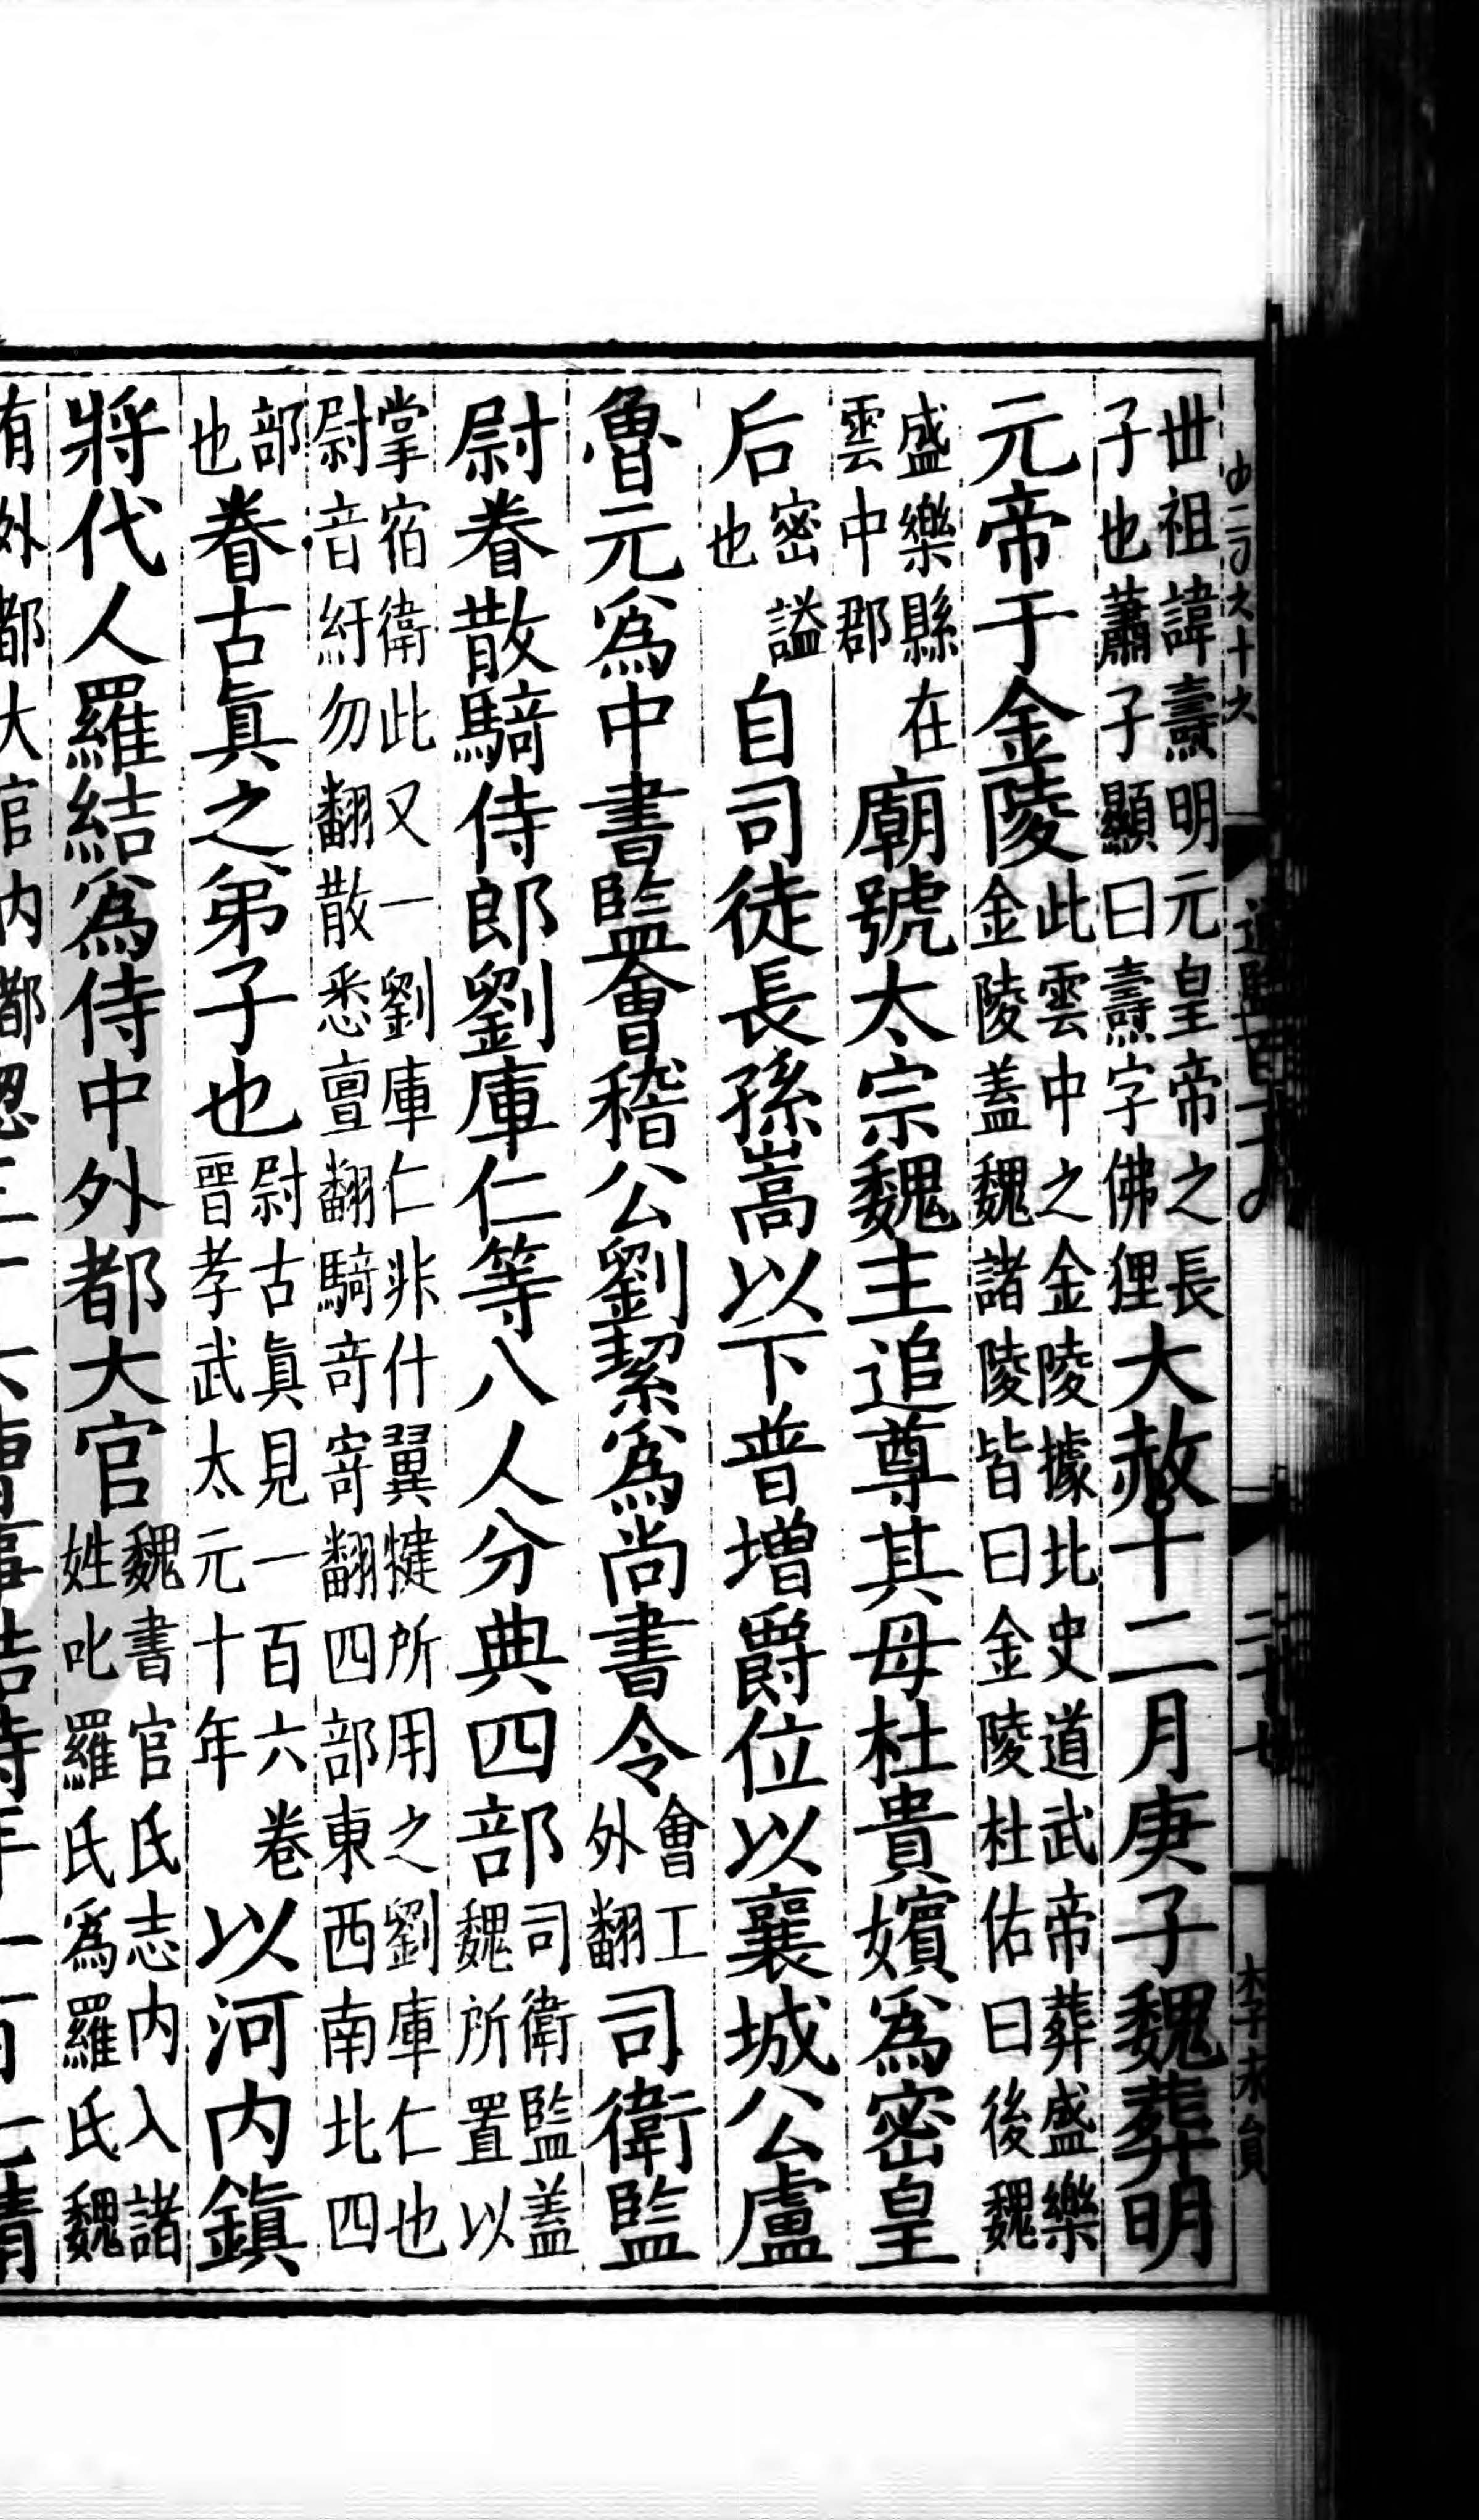 世祖諱壽明元皇帝之長子也蕭子顯曰壽字佛狸大赦十二月庚子魏葬明
元帝于金陵此雲中之金陵據北史道武帝葬盛樂金陵蓋魏諸陵皆曰金陵杜佑曰後魏
盛樂縣在雲中郡廟號太宗魏主追尊其母杜貴嬪爲密皇
后密謚也自司徒長孫嵩以下普增爵位以襄城公盧
魯元爲中書監會稽公劉絜爲尚書令會工外翻司衛監
尉眷散騎侍郎劉庫仁等八人分典四部司衛監蓋魏所置以
掌宿衛此又一劉庫仁非什翼犍所用之劉庫仁也尉音紆勿翻散悉亶翻騎奇寄翻四部東西南北四
部也眷古眞之弟子也尉古眞見一百六卷晉孝武太元十年以河内鎭
將代人羅結爲侍中外都大官魏書官氏志内入諸姓叱羅氏爲羅氏魏